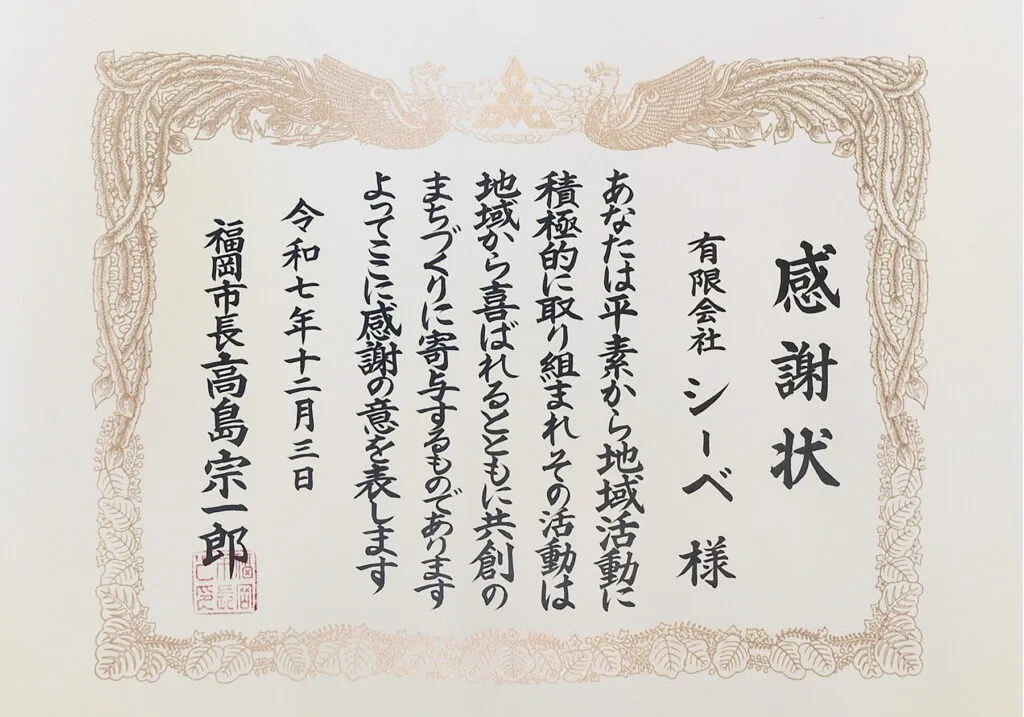 感謝状
有限会社 シーベ 様
あなたは平素から地域活動に
積極的に取り組まれその活動は
地域から喜ばれるとともに共創の
まちづくりに寄与するものであります
よってここに感謝の意を表します
令和七年十二月三日
福岡市長 高島宗一郎